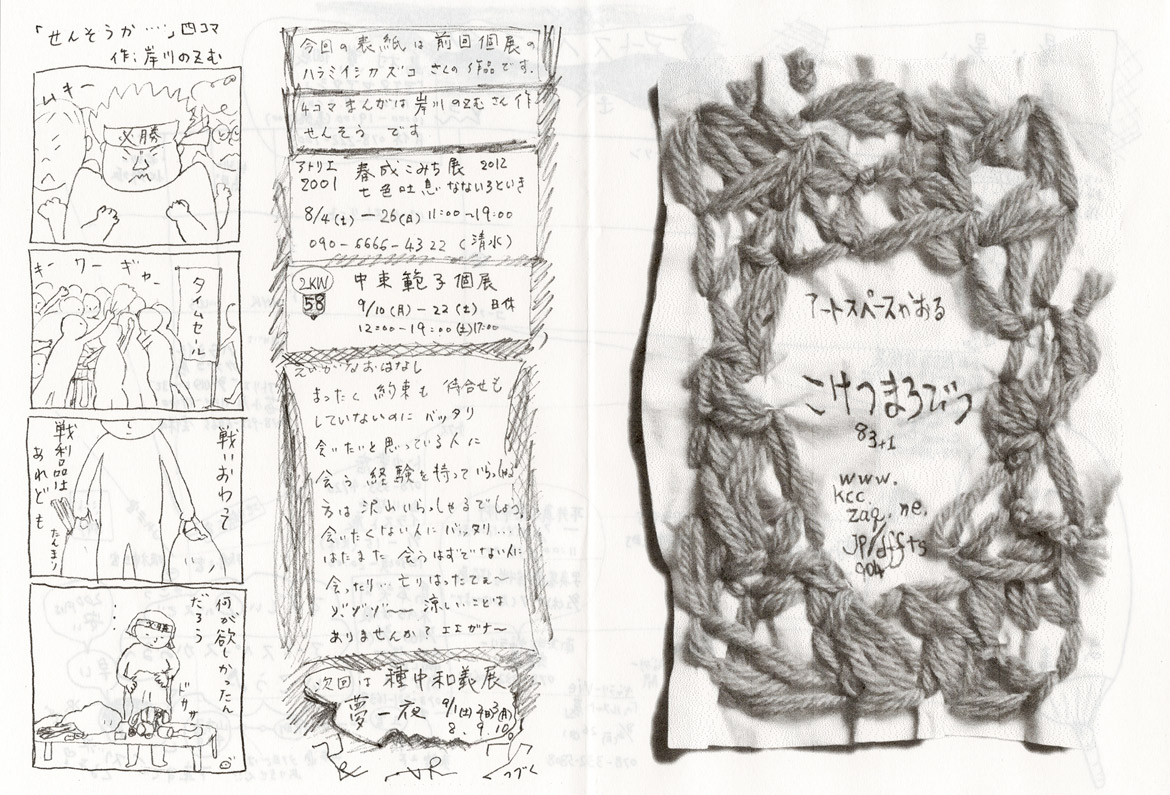 「せんそうか…」四コマ
作:岸川のぞむ
ムキー
必勝
キー ワー ギャー
タイムセール
戦いおわって
戦利品は
あれども
何が欲しかったん
だろう
必勝
ドササ
今回の表紙は前回個展の
ハラミイシカズコさんの作品です.
4コマまんがは岸川のぞむさん作
せんそう です
アトリエ
2001
春成こみち展 2012
七色吐息 なないろといき
8/4(土)-26(日) 11:00~19:00
090-6666-4322 (清水)
2KW
58
中東範子個展
9/10(月)-22(土) 日休
12:00-19:00(土)17:00
まったく約束も待合せも
していないのに バッタリ
会いたいと思っている人に
会う 経験を持っていらっしゃる
方は沢山いらっしゃるでしょう.
会いたくない人にバッタリ…
はたまた 会うはずでない人に
会ったり…
ゾゾゾ~ 涼しいことは
ありませんか? エエガナ~
次回は 種中和義展
夢一夜
8. 9. 10
つづく
アートスペースかおる
こけつまろびつ
83+1
www.
kcc.
zaq.ne.
JP/dffts
904